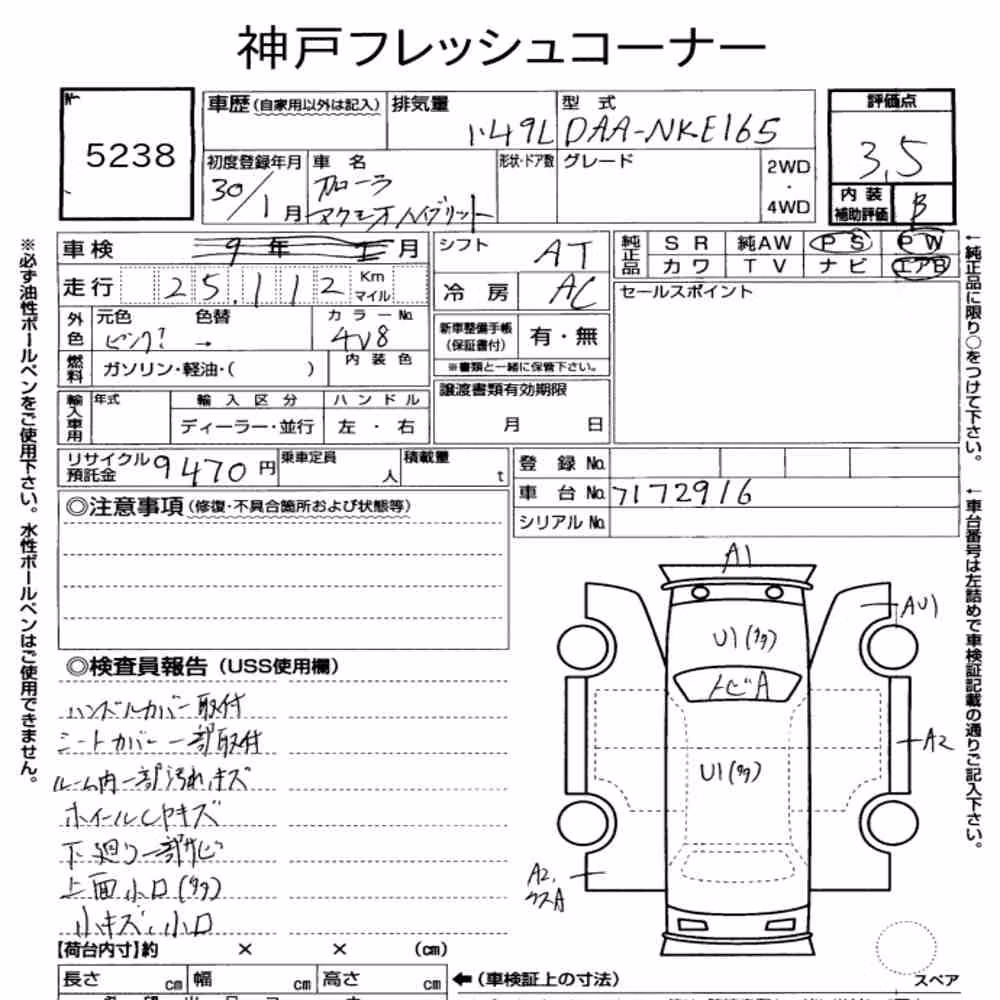 神戸フレッシュコーナー
5238
車歴(自家用以外は記入)
排気量
1.49L
型式
DAA-NKE165
評価点
3.5
初度登録年月
30/1月
車名
カローラ
アクシオハイブリット
形状・ドア数
グレード
2WD
・
4WD
内装
補助評価
B
車検
9年1月
シフト
AT
純正品
SR
純AW
PS
PW
カワ
TV
ナビ
エアB
走行
25,112
Km
マイル
冷房
AC
セールスポイント
外色
元色
色替
ピンク?
→
カラーNo.
4V8
新車整備手帳
(保証書付)
有・無
※書類と一緒に保管下さい。
燃料
ガソリン・軽油・( )
内装色
譲渡書類有効期限
月 日
輸入車用
年式
輸入区分
ハンドル
ディーラー・並行
左・右
リサイクル
預託金
9470円
乗車定員
人
積載量
t
登録No.
車台No.
7172916
シリアルNo.
◎注意事項(修復・不具合箇所および状態等)
◎検査員報告(USS使用欄)
ハンドルカバー取付
シートカバー一部取付
ルーム内一部汚れキズ
ホイールCPキズ
下廻り一部サビ
上面小凹(タタ)
小キズ小凹
A1
AU1
U1(タタ)
トビA
A2
U1(タタ)
A2,
クスA
スペア
【荷台内寸】約 × × (cm)
長さ cm
幅 cm
高さ cm
←(車検証上の寸法)
※必ず油性ボールペンをご使用下さい。水性ボールペンはご使用できません。
←純正品に限り○をつけて下さい。
←車台番号は左詰めで車検証記載の通りご記入下さい。